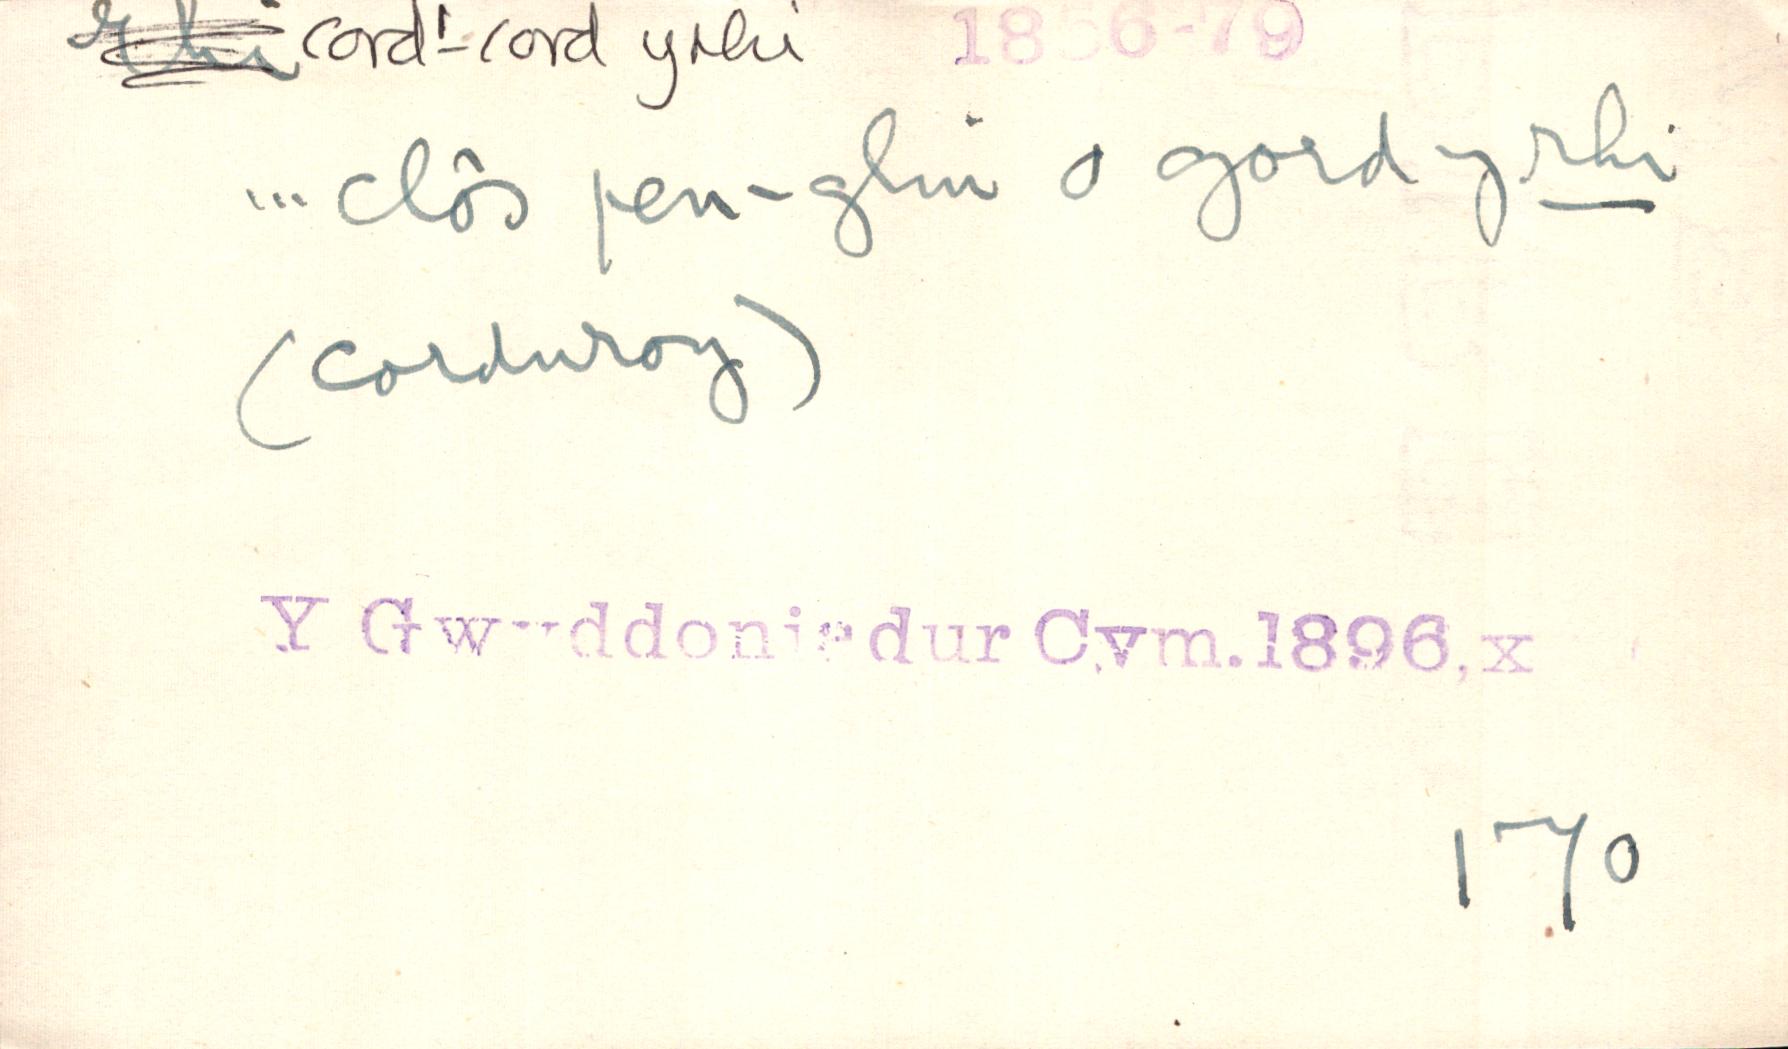 rhi cord¹-cord yrhi 1856-79
... clôs pen-glin o gord yrhi
(corduroy)
Y Gwyddoniadur Cym. 1896, x
170